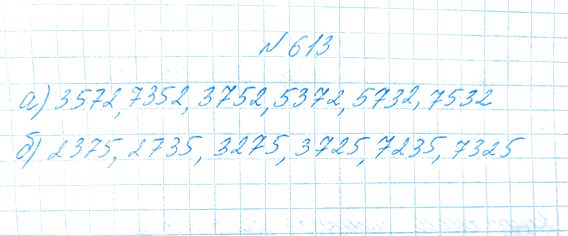 № 613
а) 3572, 7352, 3752, 5372, 5732, 7532
б) 2375, 2735, 3275, 3725, 7235, 7325